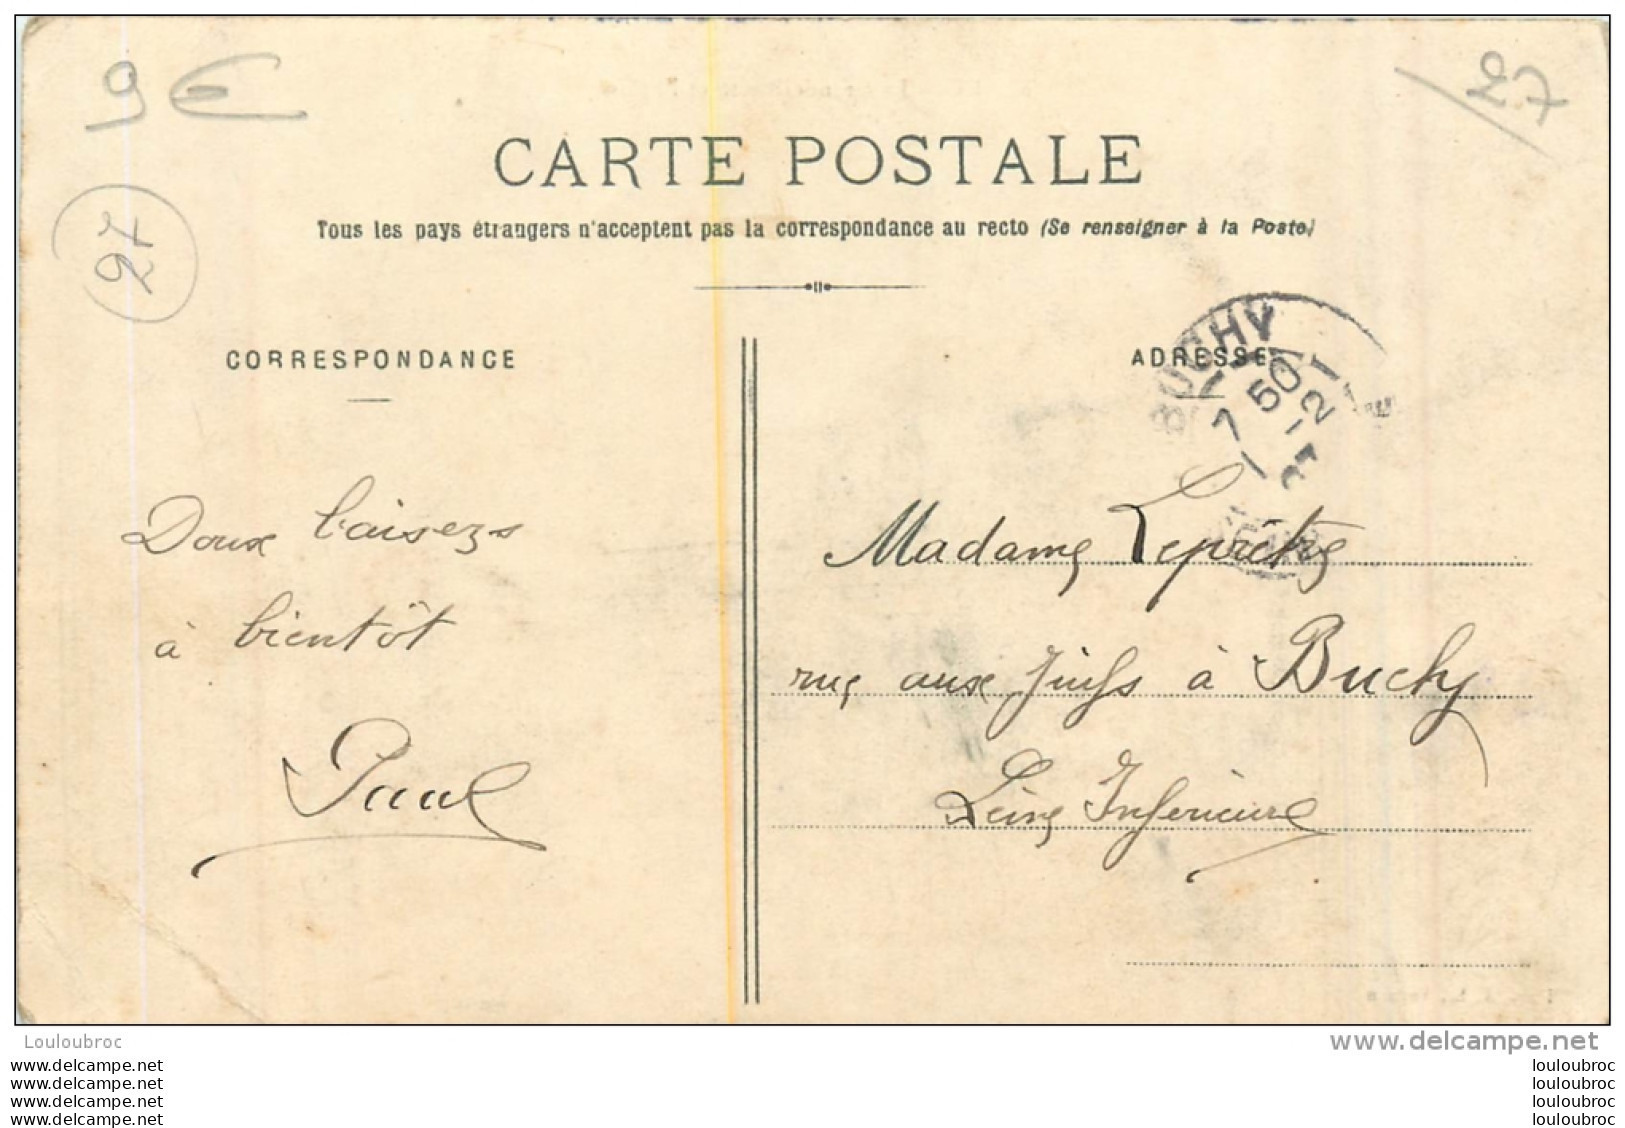 9 €
27
27
CARTE POSTALE
Tous les pays étrangers n'acceptent pas la correspondance au recto (Se renseigner à la Poste)
CORRESPONDANCE
ADRESSE
BUCHY
7 50
Doux baisers
à bientôt
Paul
Madame Leprêtre
rue aux Juifs à Buchy
Seine Inférieure
Louloubroc
www.delcampe.net
www.delcampe.net
www.delcampe.net
www.delcampe.net
www.delcampe.net
louloubroc
louloubroc
louloubroc
louloubroc